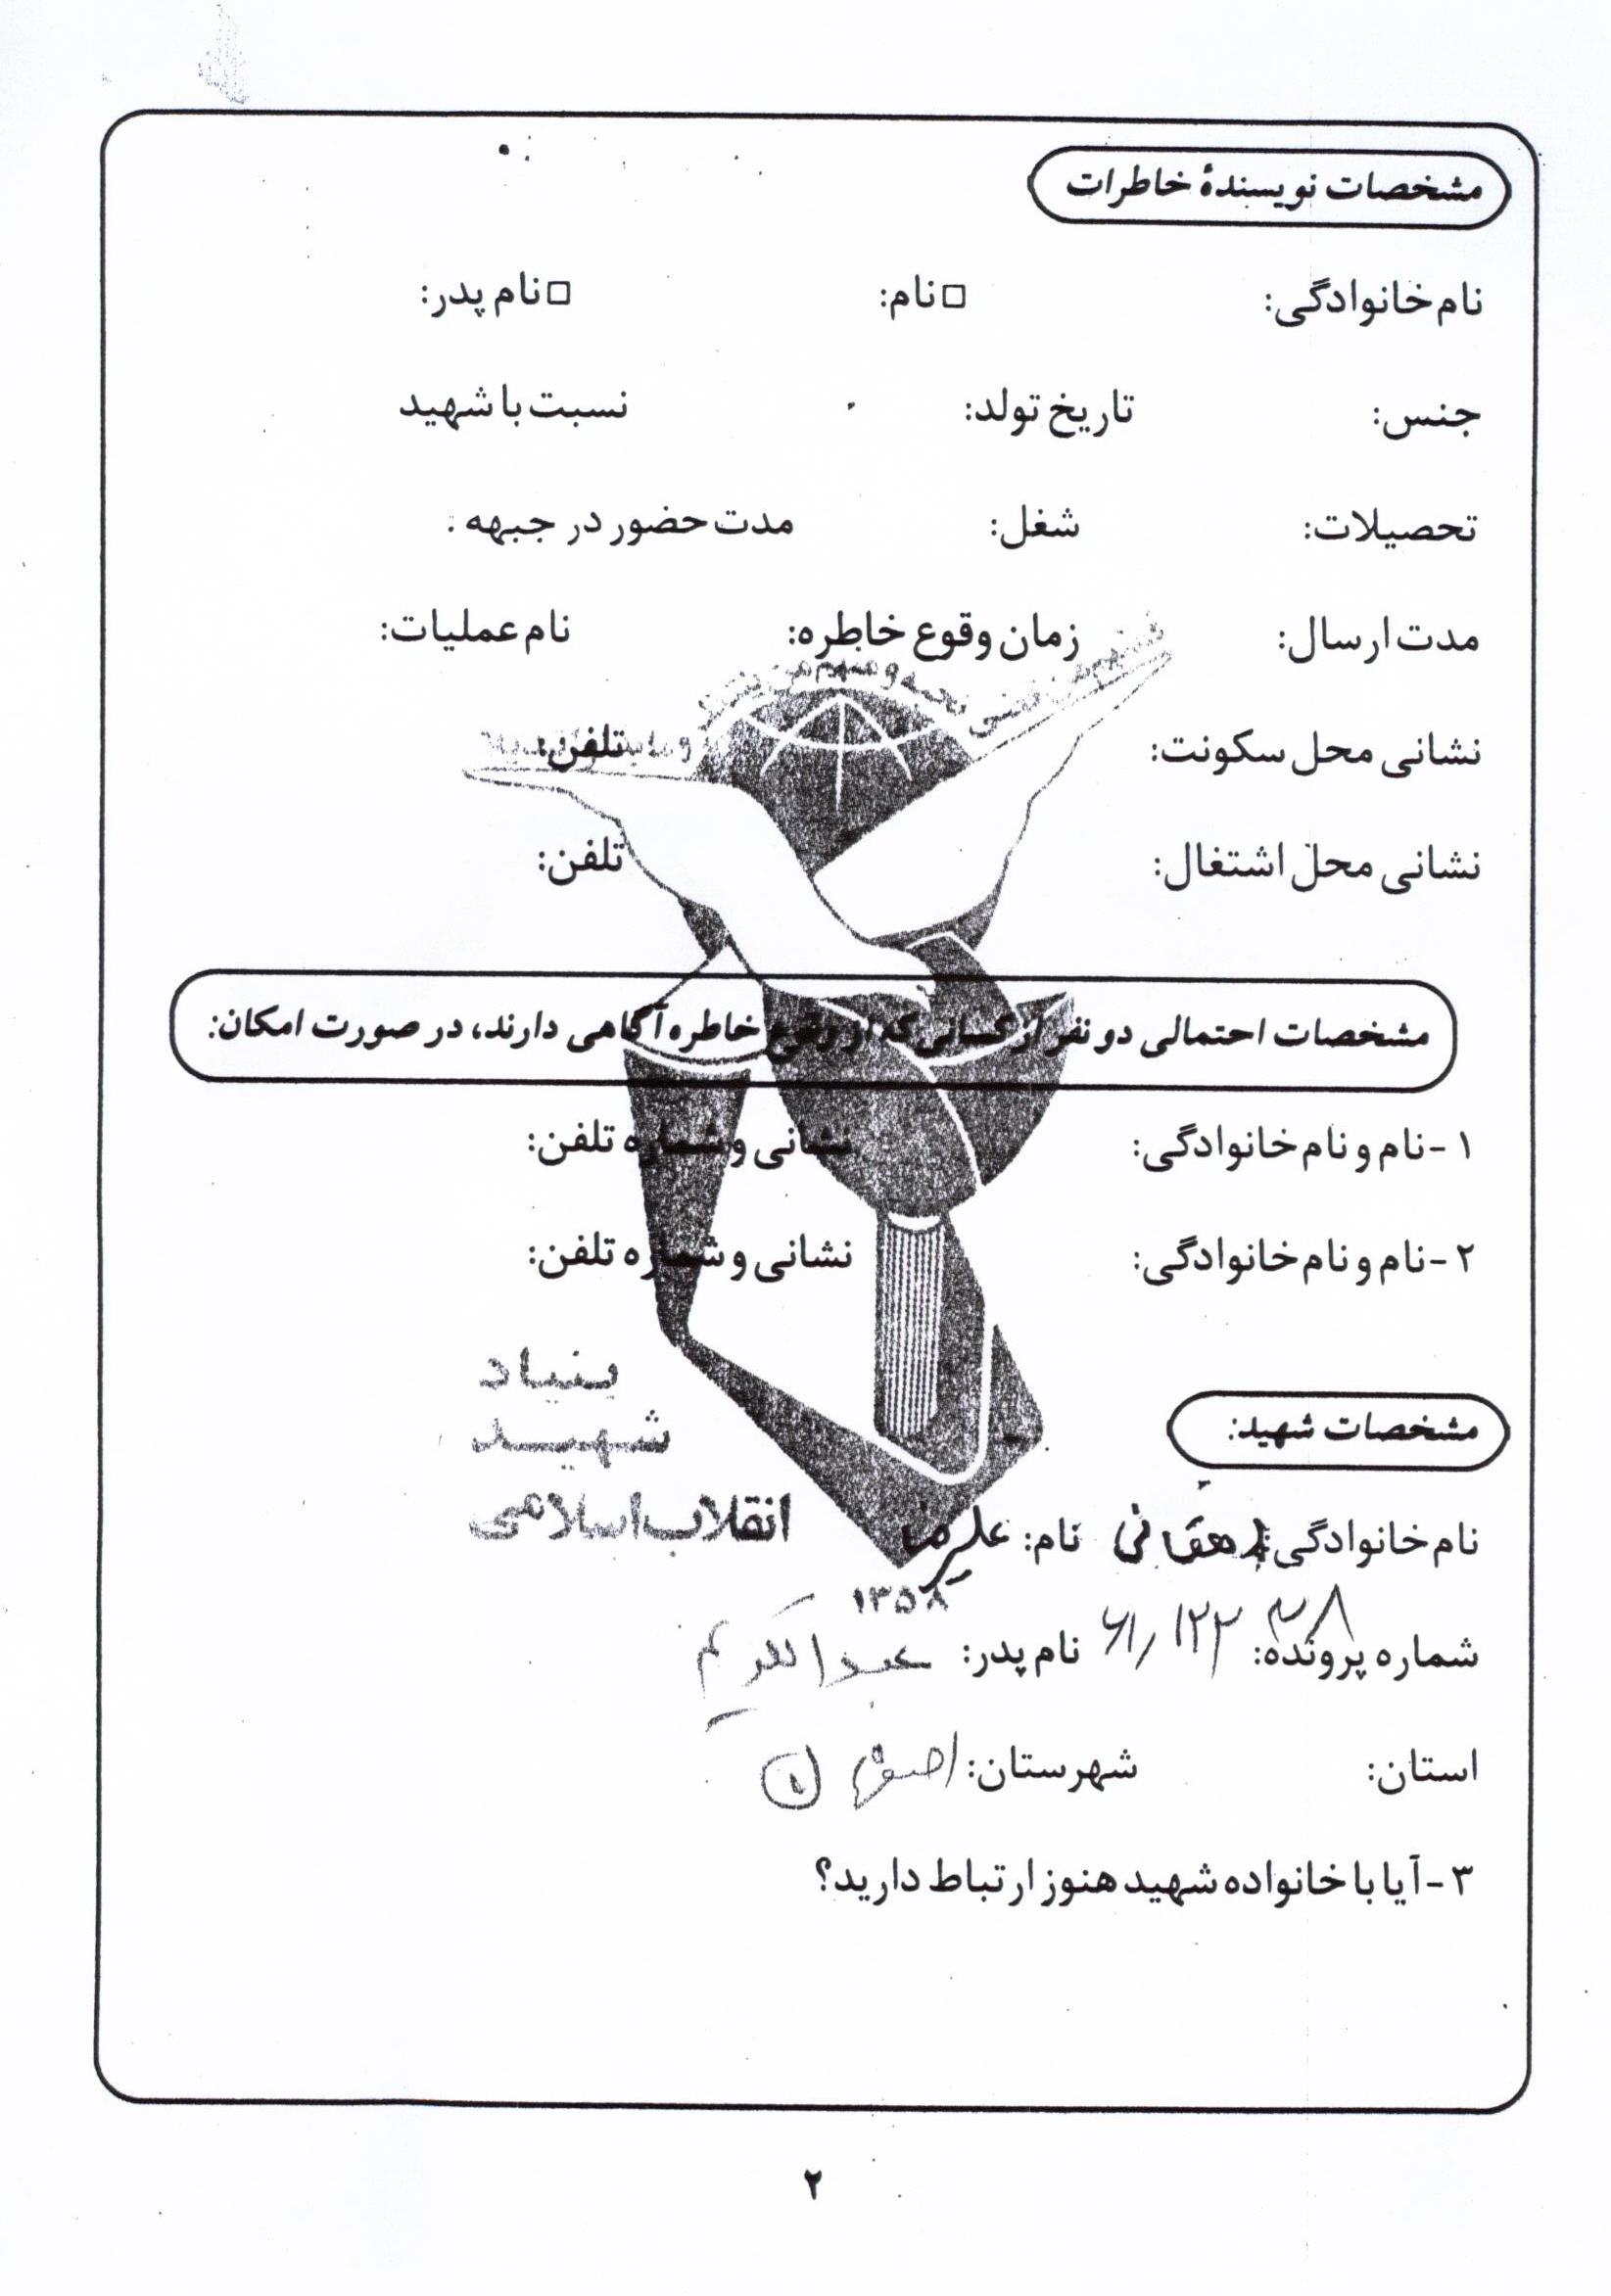 مشخصات نویسندهٔ خاطرات
نام خانوادگی: □ نام: □ نام پدر:
جنس: تاریخ تولد: نسبت با شهید
تحصیلات: شغل: مدت حضور در جبهه:
مدت ارسال: زمان وقوع خاطره: نام عملیات:
نشانی محل سکونت: تلفن:
نشانی محل اشتغال: تلفن:
مشخصات احتمالی دو نفر از کسانی که از وقوع خاطره آگاهی دارند، در صورت امکان:
۱- نام و نام خانوادگی: نشانی و شماره تلفن:
۲- نام و نام خانوادگی: نشانی و شماره تلفن:
بنیاد
شهید
انقلاب اسلامی
۱۳۵۸
مشخصات شهید:
نام خانوادگی: دهقانی نام: علیرضا
شماره پرونده: نام پدر: عبدالکریم
استان: شهرستان:
۳- آیا با خانواده شهید هنوز ارتباط دارید؟
۲